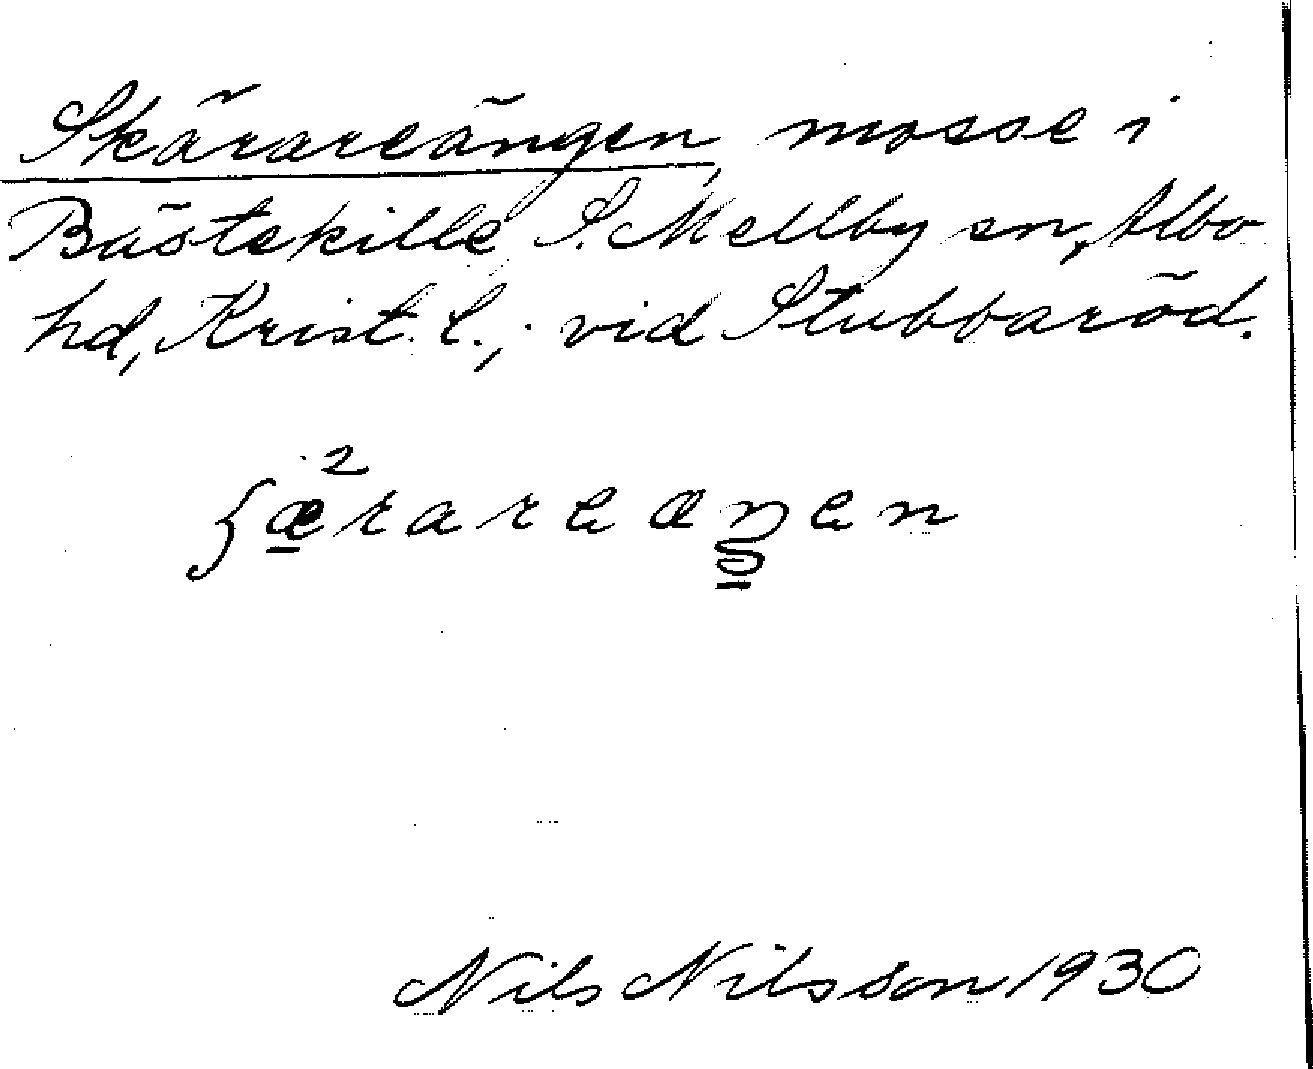 Skärareängen, mosse i
Bästekille, S. Mellby sn, Albo
hd, Krist. l.; vid Stubbaröd.
Nils Nilsson 1930